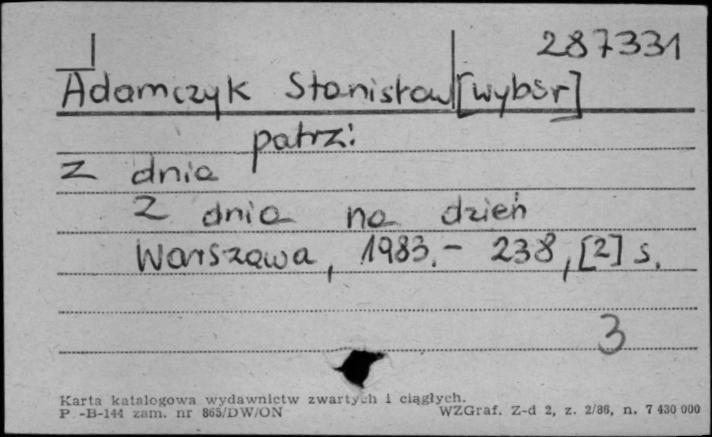 287331
Adamczyk Stanisław [wybór]
patrz:
Z dnia
Z dnia na dzień
Warszawa, 1983.- 238, [2] s.
3
Karta katalogowa wydawnictw zwartych i ciągłych.
P.-B-144 zam. nr 865/DW/ON
WZGraf. Z-d 2, z. 2/86, n. 7 430 000